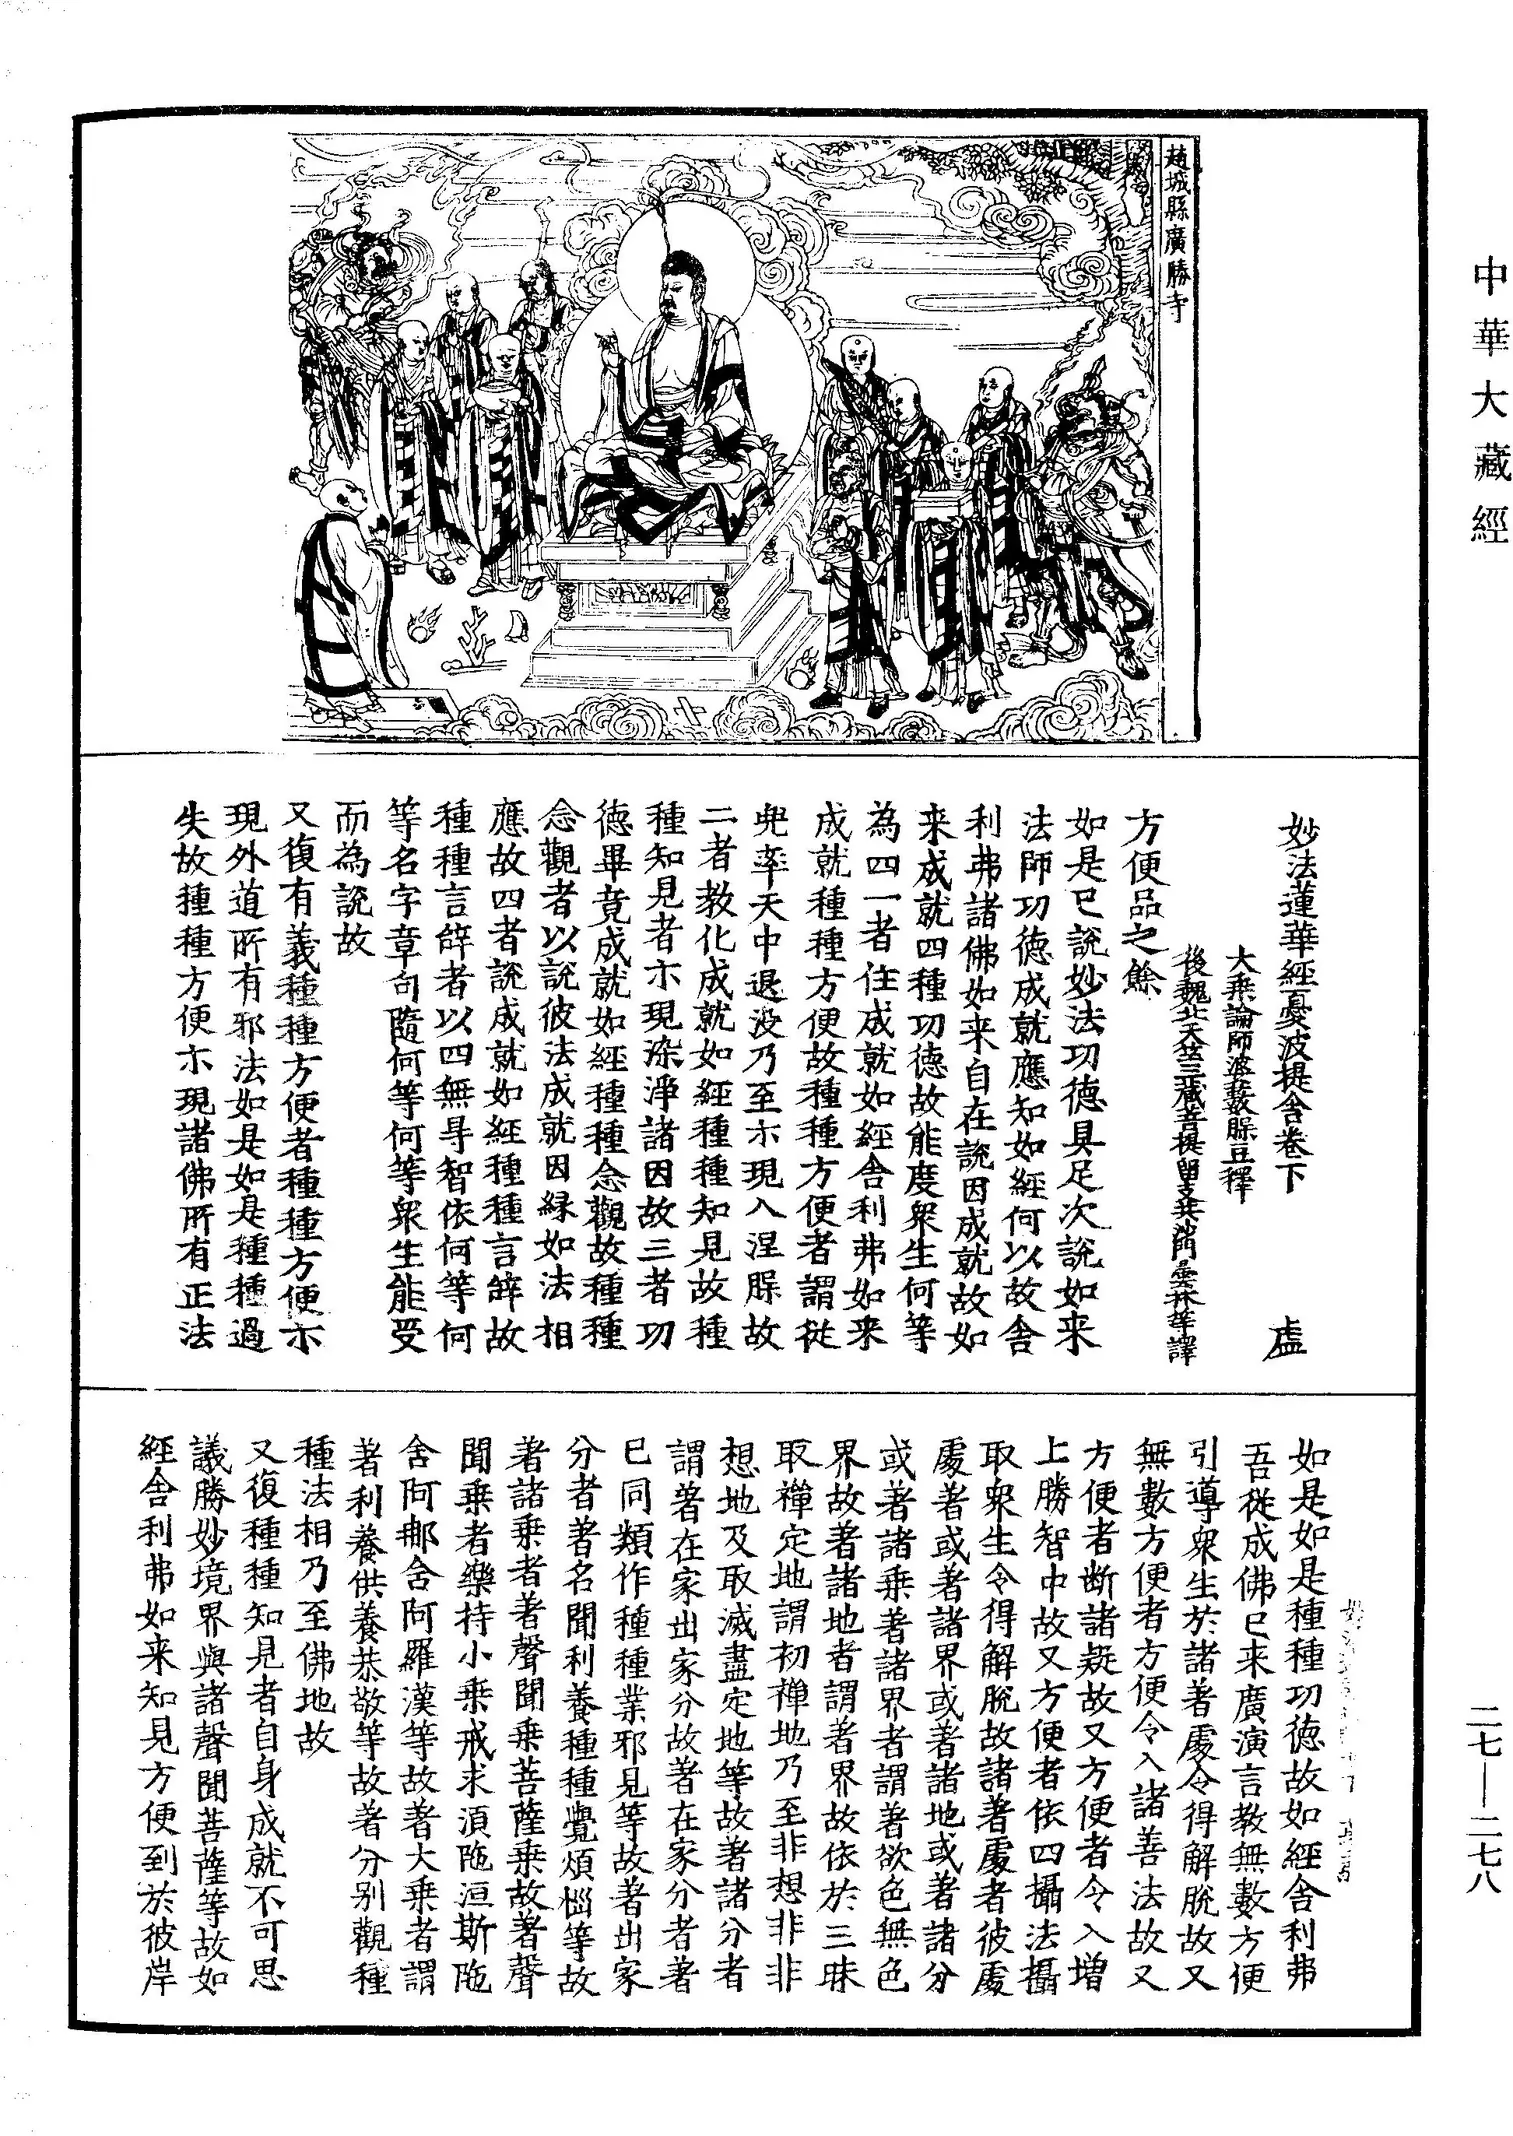 中華大藏經
趙城縣廣勝寺
妙法蓮華經憂波提舍卷下
虛
大乘論師婆藪槃豆釋
後魏北天竺三藏菩提留支共沙門曇林等譯
方便品之餘
如是已說妙法功德具足次說如来
法師功德成就應知如經何以故舍
利弗諸佛如来自在說因成就故如
来成就四種功德故能度衆生何等
為四一者住成就如經舍利弗如来
成就種種方便故種種方便者謂從
兜率天中退没乃至示現入涅槃故
二者教化成就如經種種知見故種
種知見者示現染淨諸因故三者功
德畢竟成就如經種種念觀故種種
念觀者以說彼法成就因緣如法相
應故四者說成就如經種種言辝故
種種言辝者以四無㝵智依何等何
等名字章句隨何等何等衆生能受
而為說故
又復有義種種方便者種種方便示
現外道所有邪法如是如是種種過
失故種種方便示現諸佛所有正法
如是如是種種功德故如經舍利弗
吾從成佛已来廣演言教無數方便
引導衆生於諸著處令得解脫故又
無數方便者方便令入諸善法故又
方便者断諸疑故又方便者令入增
上勝智中故又方便者依四攝法攝
取衆生令得解脫故諸著處者彼處
處著或著諸界或著諸地或著諸分
或著諸乘著諸界者謂著欲色無色
界故著諸地者謂著界故依於三昧
取禪定地謂初禪地乃至非想非非
想地及取滅盡定地等故著諸分者
謂著在家出家分故著在家分者著
已同類作種種業邪見等故著出家
分者著名聞利養種種覺煩惱等故
著諸乘者著聲聞乘菩薩乘故著聲
聞乘者樂持小乘戒求須陁洹斯陁
含阿那含阿羅漢等故著大乘者謂
著利養供養恭敬等故著分別觀種
種法相乃至佛地故
又復種種知見者自身成就不可思
議勝妙境界與諸聲聞菩薩等故如
經舍利弗如来知見方便到於彼岸
二七—二七八